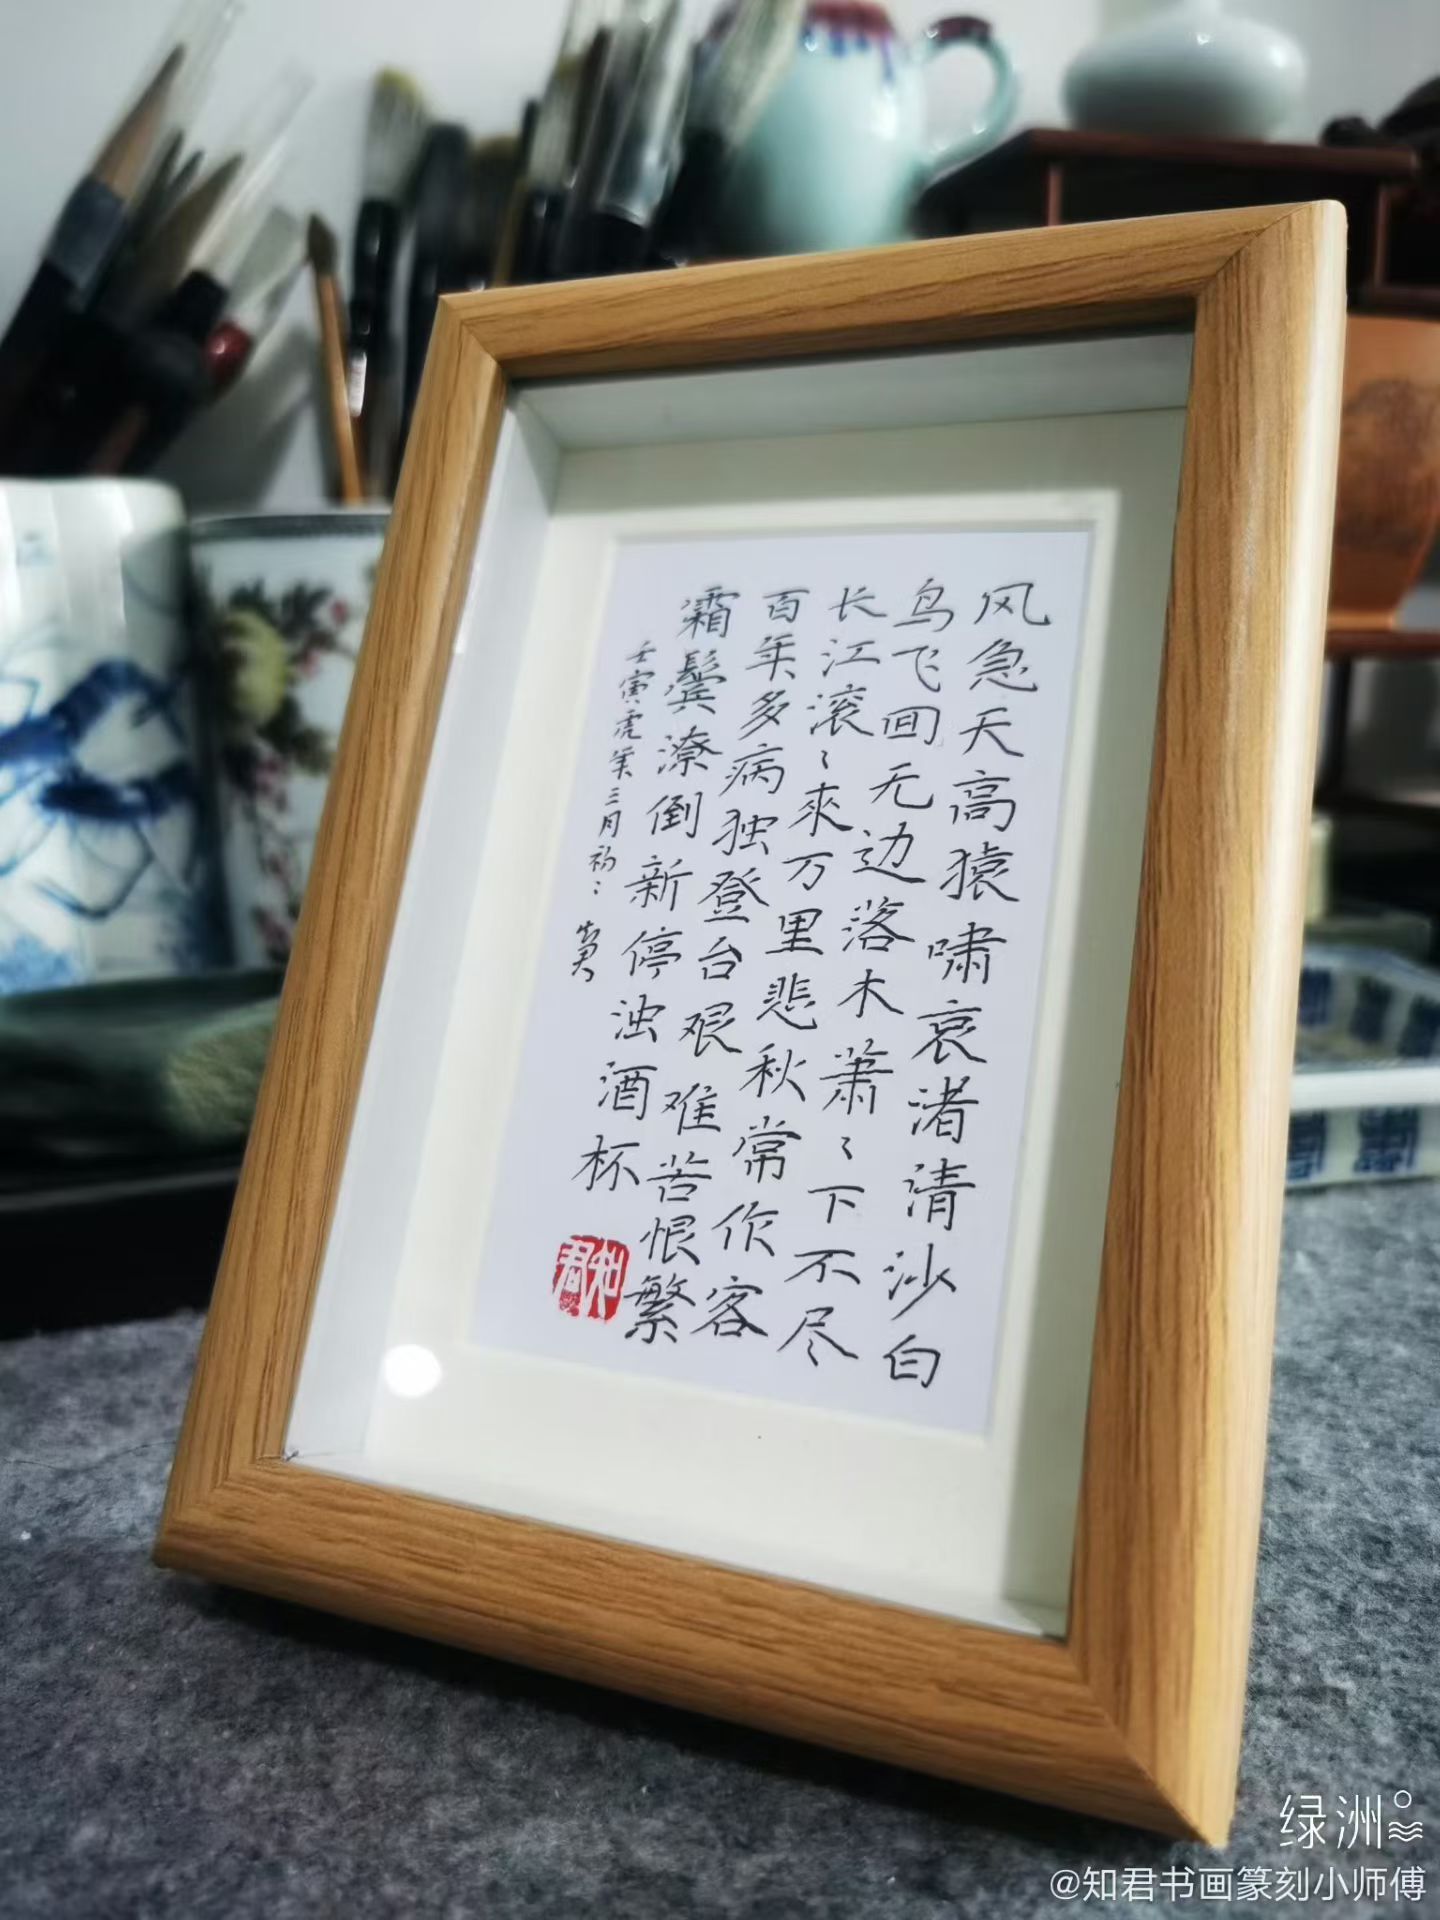 风急天高猿啸哀渚清沙白
鸟飞回无边落木萧〻下不尽
长江滚〻来万里悲秋常作客
百年多病独登台艰难苦恨繁
霜鬓潦倒新停浊酒杯
壬寅虎年三月初二
知君
绿洲
@知君书画篆刻小师傅